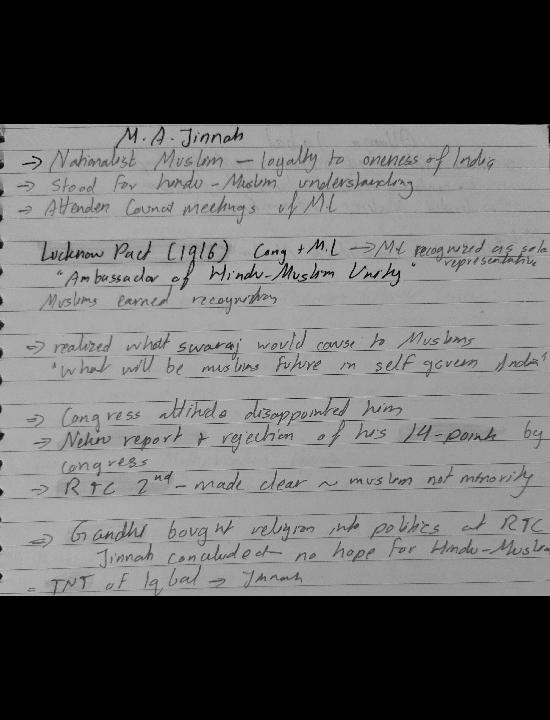 M. A. Jinnah
→ Nationalist Muslim — loyalty to oneness of India
→ Stood for hindu - Muslim understanding
→ Attended Council meetings of ML
Lucknow Pact (1916) Cong + M.L → ML recognized as sole
representative
"Ambassador of Hindu-Muslim Unity"
Muslims earned recognition
→ realized what swaraj would cause to Muslims
"What will be muslims future in self govern India"
→ Congress attitude disappointed him
→ Nehru report & rejection of his 14-points by
congress
→ RTC 2nd - made clear ~ muslim not minority
⇒ Gandhi bought religion into politics at RTC
Jinnah concluded no hope for Hindu-Muslim
= TNT of Iqbal → Jinnah